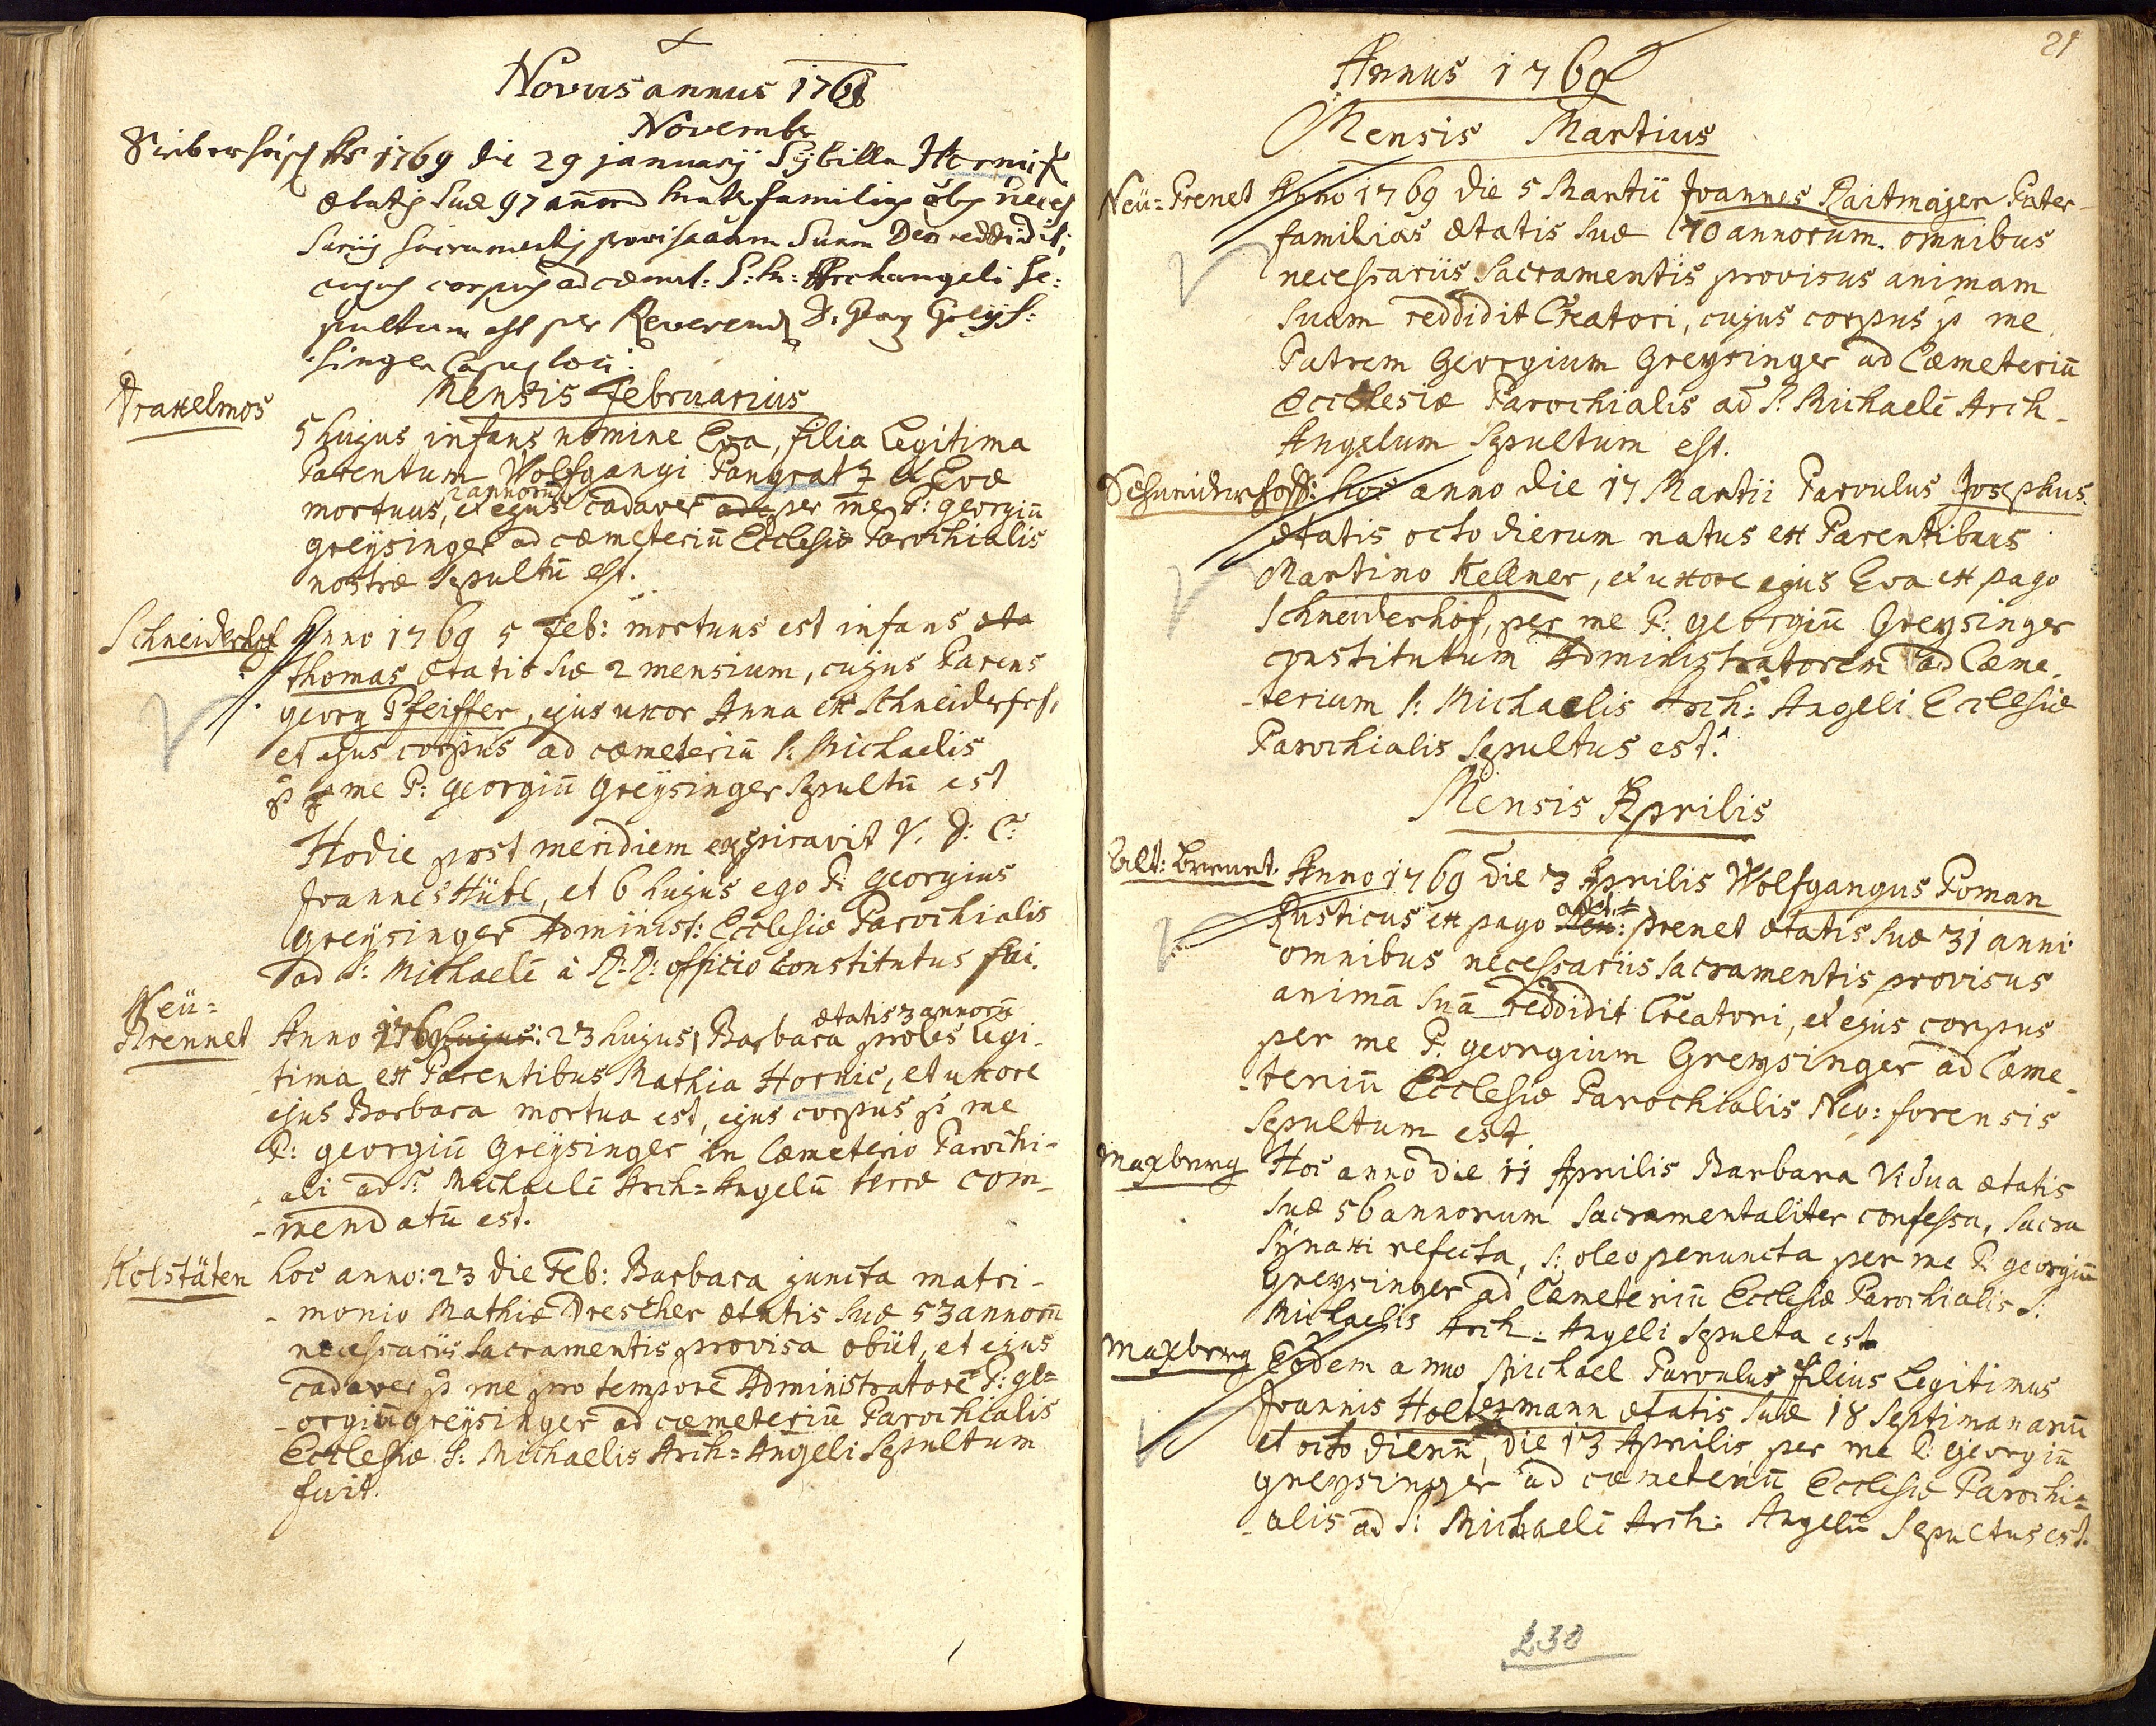 Novus annus 1768
Novembr
1769 die 29 january Sybilla Hornik
ætatis suæ 97 annor mater familias neces
sarijs sacramentis provisa anim suam Deo reddidit,
cujus corpus ad cœmet: S: M: Archangeli se:
pultum est per Reverend D: Georg Greys:
singer loci.
Draxelmos Mensis Februarius
5 hujus infans nomine Eva, filia Legitima
Parentum Wolfgangi Pangratz et Evæ
2 annorū
mortuus, et ejus cadaver per me P: georgiū
greysinger ad cœmeteriū Ecclesiæ Parochialis
nostræ sepultū est.
Schneiderhof Anno 1769 5 Feb: mortuus est infans æta
Thomas ætatis suæ 2 mensium, cujus Parens
georg Pfeiffer, ejus uxor Anna ex Schneiderhof,
et ejus corpus ad cœmeteriū S: Michaelis
p me P: georgiū Greysinger sepultū est
Hodie post meridiem expiravit V. D: C:
Joannes Hütl, et 6 hujus ego P: georgius
greysinger Administ: Ecclesiæ Parochialis
ad S: Michaelē à R: R: officio constitutus fui.
Neü=
Brennet Anno 1769 hujus: 23 hujus, Barbara ætatis 3 annorū proles legi-
tima ex Parentibus Mathia Hornic, et uxore
ejus Barbara mortua est, ejus corpus p me
P: georgiū Greysinger in Cœmeterio Parochi-
-ali ad S: Michaelē Arch=Angelū terræ com-
-mendatū est.
Kolstäten hoc anno: 23 die Feb: Barbara juncta matri-
-monio Mathiæ Drescher ætatis suæ 53 annorū
necessariis sacramentis provisa obiit, et ejus
cadaver p me pro tempore Administratore P: ge=
-orgiū greysinger ad cœmeteriū Parochialis
Ecclesiæ S: Michaelis Arch=Angeli sepultum
fuit.
21
Annus 1769
Mensis Martius
Neü=Prenet Anno 1769 die 5 Martii Joannes Raitmajer Pater-
familias ætatis suæ 70 annorum. omnibus
necessariis Sacramentis provisus animam
suam reddidit Creatori, cujus corpus p me
Patrem Georgium Greysinger ad Cœmeteriū
Ecclesiæ Parochialis ad S: Michaelē Arch-
Angelum Sepultum est.
Schneiderhoff: hoc anno die 17 Martii Parvulus Josephus
ætatis octo dierum natus ex Parentibus
Martino Kellner, et uxore ejus Eva ex pago
Schneiderhof, per me P: georgiū Greysinger
constitutum Administratorem ad Cœme-
-terium S: Michaelis Arch: Angeli Ecclesiæ
Parochialis Sepultus est.
Mensis Aprilis
Alt: Brennet. Anno 1769 die 3 Aprilis Wolfgangus Poman
Rusticus ex pago Neü: alt= prenet ætatis suæ 31 anni
omnibus necessariis sacramentis provisus
animā suā reddidit Creatori, et ejus corpus
per me P. georgium Greysinger ad Cœme-
-teriū Ecclesiæ Parochialis Neo: forensis
Sepultum est
Maxbrurg Hoc anno die 11 Aprilis Barbara Vidua ætatis
suæ 56 annorum Sacramentaliter confessa, sacra
Synaxi refecta, S: oleo peruncta per me P: georgiū
Greysinger ad Cœmeteriū Ecclesiæ Parochialis S:
Michaelis Arch-Angeli Sepulta est
Maxbrurg Eodem anno Michael Parvulus filius Legitimus
Joannis Holtzmann ætatis suæ 18 septimanarū
et octo dierū, die 13 Aprilis, per me P: georgiū
greysinger ad cœmeteriū Ecclesiæ Parochi=
-alis ad S: Michaelē Arch: Angelū Sepultus est.
230